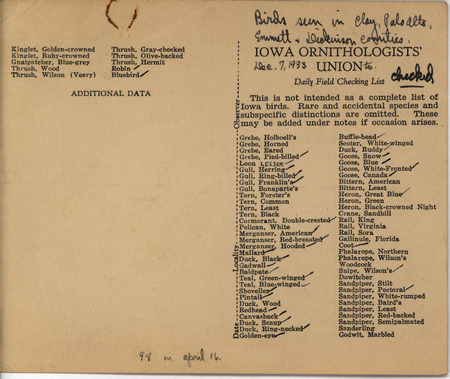 Kinglet, Golden-crowned
Kinglet, Ruby-crowned
Gnatcatcher, Blue-grey
Thrush, Wood
Thrush, Wilson (Veery)
Thrush, Gray-cheeked
Thrush, Olive-backed
Thrush, Hermit
Robin
Bluebird
ADDITIONAL DATA
98 on april 16.
Birds seen in Clay, Palo Alto,
Emmett & Dickinson counties.
IOWA ORNITHOLOGISTS'
Dec. 7, 1933 UNION to
Daily Field Checking List checked
This is not intended as a complete list of
Iowa birds. Rare and accidental species and
subspecific distinctions are omitted. These
may be added under notes if occasion arises.
Observer
Locality
Date
Grebe, Holboell's
Grebe, Horned
Grebe, Eared
Grebe, Pied-billed
Loon
Gull, Herring
Gull, Ring-billed
Gull, Franklin's
Gull, Bonaparte's
Tern, Forster's
Tern, Common
Tern, Least
Tern, Black
Cormorant, Double-crested
Pelican, White
Merganser, American
Merganser, Red-breasted
Merganser, Hooded
Mallard
Duck, Black
Gadwall
Baldpate
Teal, Green-winged
Teal, Blue-winged
Shoveller
Pintail
Duck, Wood
Redhead
Canvasback
Duck, Scaup
Duck, Ring-necked
Golden-eye
Buffle-head
Scoter, White-winged
Duck, Ruddy
Goose, Snow
Goose, Blue
Goose, White-Fronted
Goose, Canada
Bittern, American
Bittern, Least
Heron, Great Blue
Heron, Green
Heron, Black-crowned Night
Crane, Sandhill
Rail, King
Rail, Virginia
Rail, Sora
Gallinule, Florida
Coot
Phalarope, Northern
Phalarope, Wilson's
Woodcock
Snipe, Wilson's
Dowitcher
Sandpiper, Stilt
Sandpiper, Pectoral
Sandpiper, White-rumped
Sandpiper, Baird's
Sandpiper, Least
Sandpiper, Red-backed
Sandpiper, Semipalmated
Sanderling
Godwit, Marbled